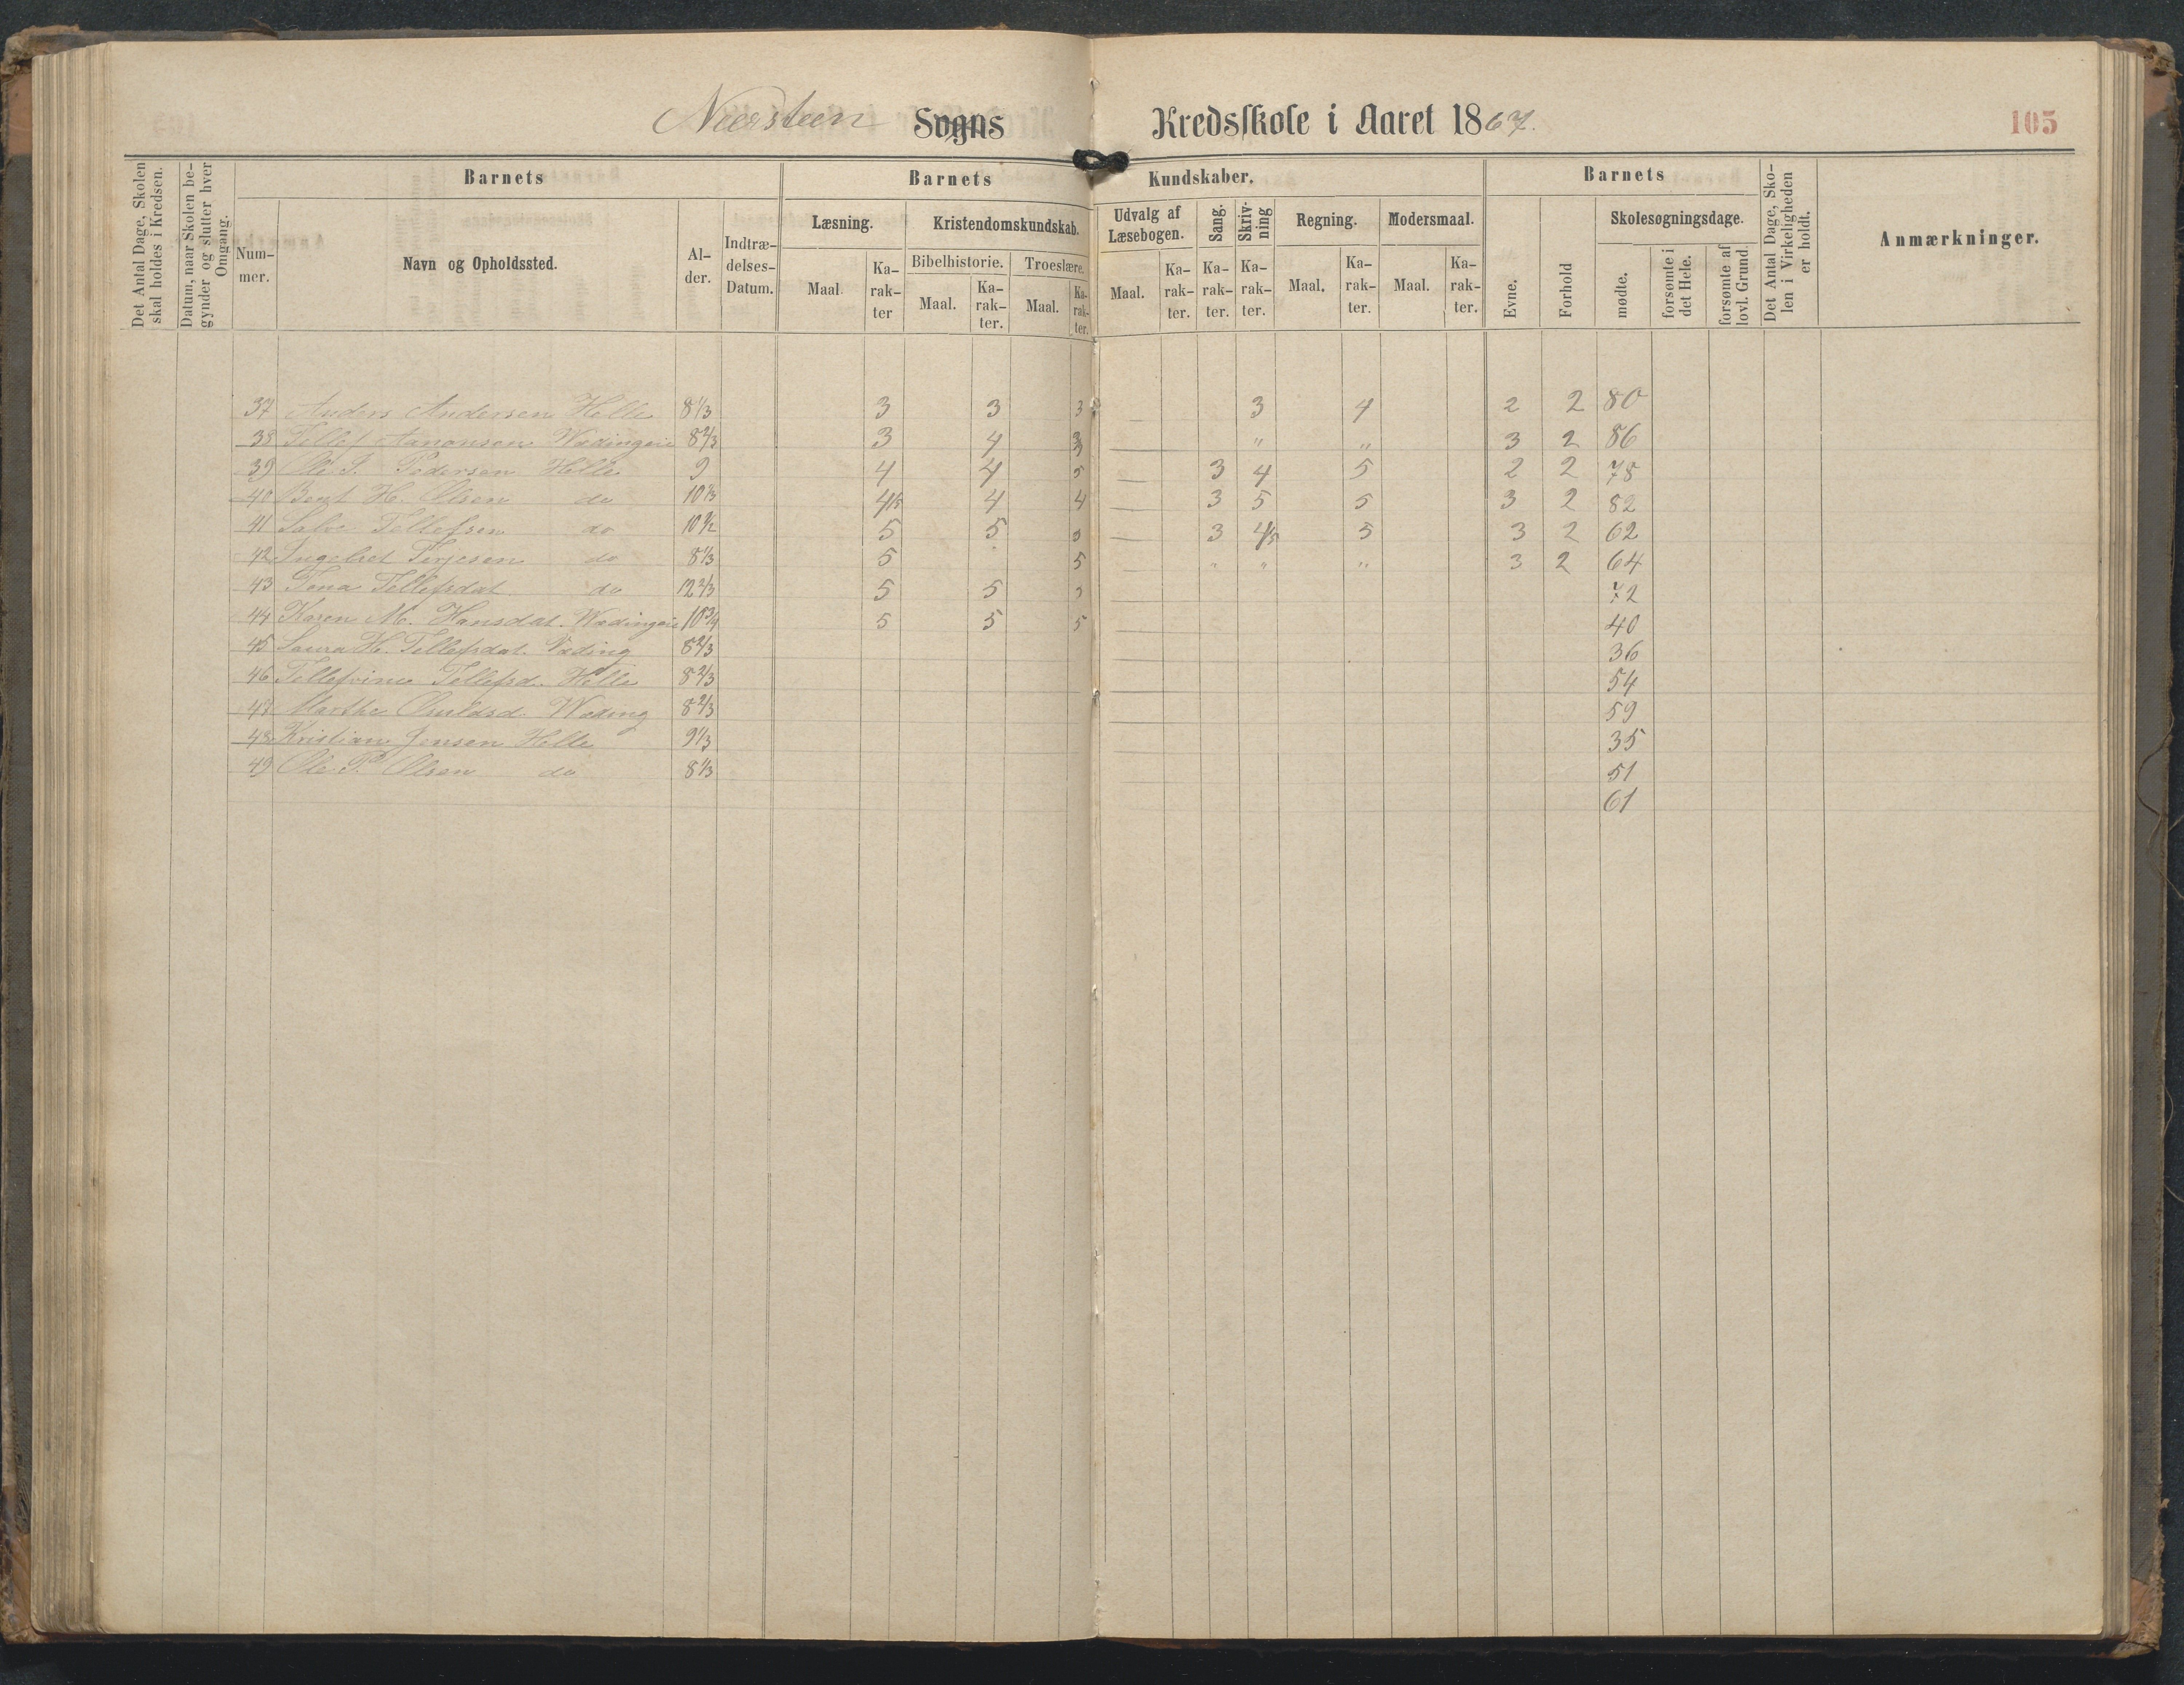 Neersteen Sogns Kredsskole i Aaret 1867.
105
Det Antal Dage, Skolen skal holdes i Kredsen.
Datum, naar Skolen begynder og slutter hver Omgang.
Barnets
Num-mer.
Navn og Opholdssted.
Al-der.
Indtræ-delses-Datum.
Barnets Kundskaber.
Læsning.
Maal.
Ka-rak-ter
Kristendomskundskab.
Bibelhistorie.
Maal.
Ka-rak-ter.
Troeslære.
Maal.
Ka-rak-ter.
Udvalg af Læsebogen.
Maal.
Ka-rak-ter.
Sang.
Ka-rak-ter.
Skriv-ning
Ka-rak-ter.
Regning.
Maal.
Ka-rak-ter.
Modersmaal.
Maal.
Ka-rak-ter.
Barnets
Evne.
Forhold
Skolesøgningsdage.
mødte.
forsømte i det Hele.
forsømte af lovl. Grund.
Det Antal Dage, Sko-len i Virkeligheden er holdt.
Anmærkninger.
37 Anders Andersen Helle 8 1/3 3 3 3 3 4 2 2 80
38 Tellef Aanonsen Wædingeie 8 2/3 3 4 " " 3 2 86
39 Ole J. Pedersen Helle 9 4 4 5 3 4 5 2 2 78
40 Bent H. Olsen do 10 1/3 4/5 4 4 3 5 5 3 2 82
41 Salve Tellefsen do 10 1/2 5 5 5 3 4/5 5 3 2 62
42 Ingebret Terjesen do 8 1/3 5 5 " " " 3 2 64
43 Tona Tellefsdat do 12 2/3 5 5 5 72
44 Karen M. Hansdat. Wædingeie 10 3/4 5 5 5 40
45 Laura H. Tellefsdat. Væding 8 2/3 36
46 Tellefine Tellefsd. Helle 8 2/3 54
47 Marthe Wæding 8 2/3 59
48 Kristian Jensen Helle 9 1/3 35
49 Ole P. Olsen do 8 1/3 51
61